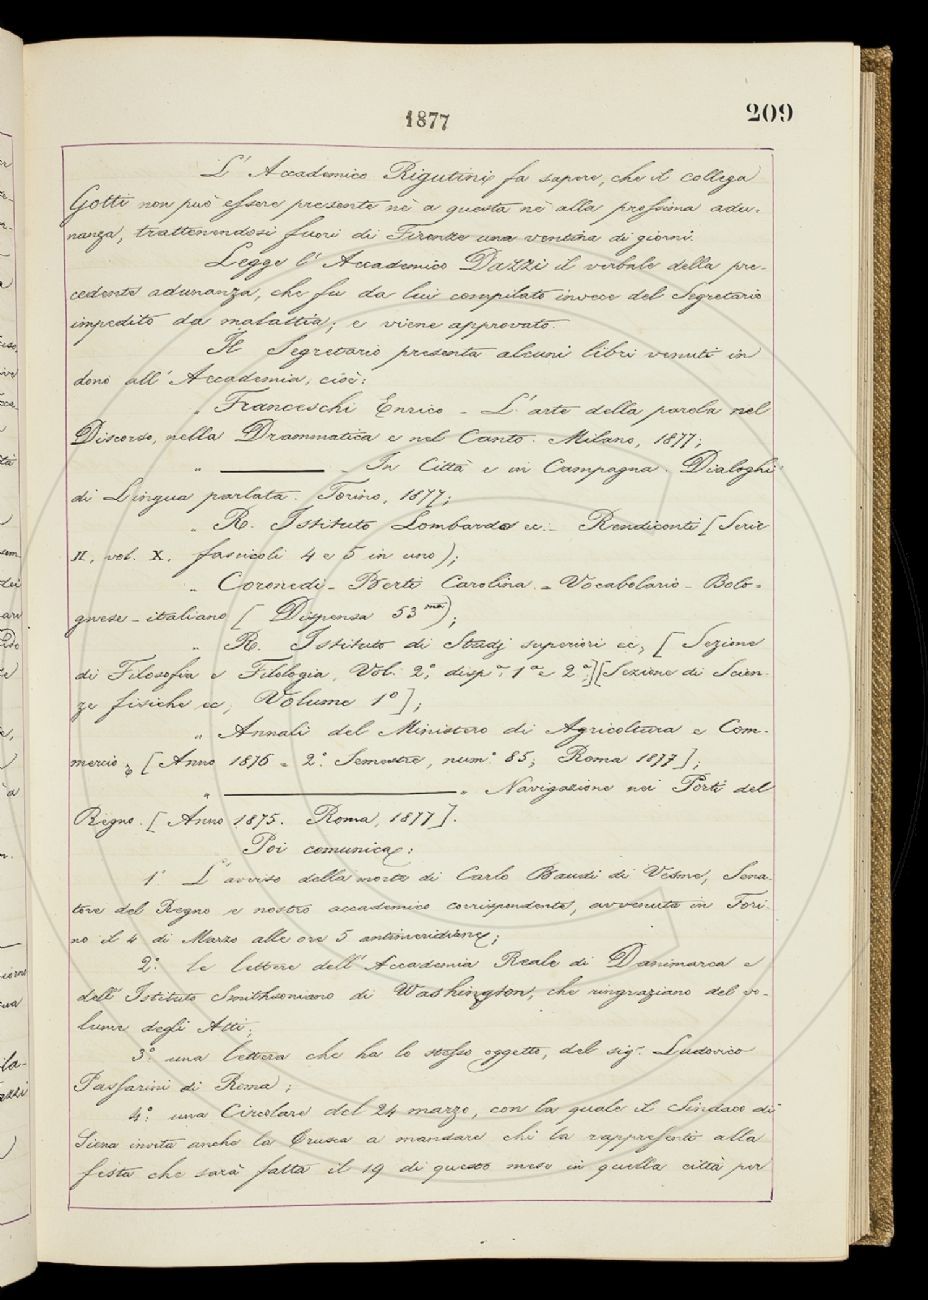 1877
209
L' Accademico Rigutini fa sapere, che il collega
Gotti non può essere presente nè a questa nè alla prossima adu-
nanza, trattenendosi fuori di Firenze una ventina di giorni.
Legge l' Accademico Dazzi il verbale della pre-
cedente adunanza, che fu da lui compilato invece del Segretario
impedito da malattia; e viene approvato.
Il Segretario presenta alcuni libri venuti in
dono all' Accademia, cioè:
„ Franceschi Enrico - L' arte della parola nel
Discorso, nella Drammatica e nel Canto. Milano, 1877;
„ ——— - In Città e in Campagna. Dialoghi
di Lingua parlata. Torino, 1877;
„ R. Istituto Lombardo ec. - Rendiconti [Serie
II, vol. X, fascicoli 4 e 5 in uno);
„ Coronedi - Berti Carolina - Vocabolario - Bolo-
gnese - italiano [ Dispensa 53ma);
„ R. Istituto di Studj superiori ec, [ Sezione
di Filosofia e Filologia, Vol. 2°, disp.a 1a e 2a][Sezione di Scien-
ze fisiche ec, Volume 1° ];
„ Annali del Ministero di Agricoltura e Com-
mercio; [ Anno 1876 - 2° Semestre, num° 85; Roma 1877 ];
„ ——— „ Navigazione nei Porti del
Regno. [ Anno 1875. Roma, 1877 ].
Poi comunica:
1° L' avviso della morte di Carlo Baudi di Vesme, Sena-
tore del Regno e nostro accademico corrispondente, avvenuta in Tori-
no il 4 di Marzo alle ore 5 antimeridiane;
2° le lettere dell' Accademia Reale di Danimarca e
dell' Istituto Smithsoniano di Washington, che ringraziano del vo-
lume degli Atti;
3° una lettera che ha lo stesso oggetto, del sig. Ludovico
Passarini di Roma;
4° una Circolare del 24 marzo, con la quale il Sindaco di
Siena invita anche la Crusca a mandare chi la rappresenti alla
festa che sarà fatta il 19 di questo mese in quella città per